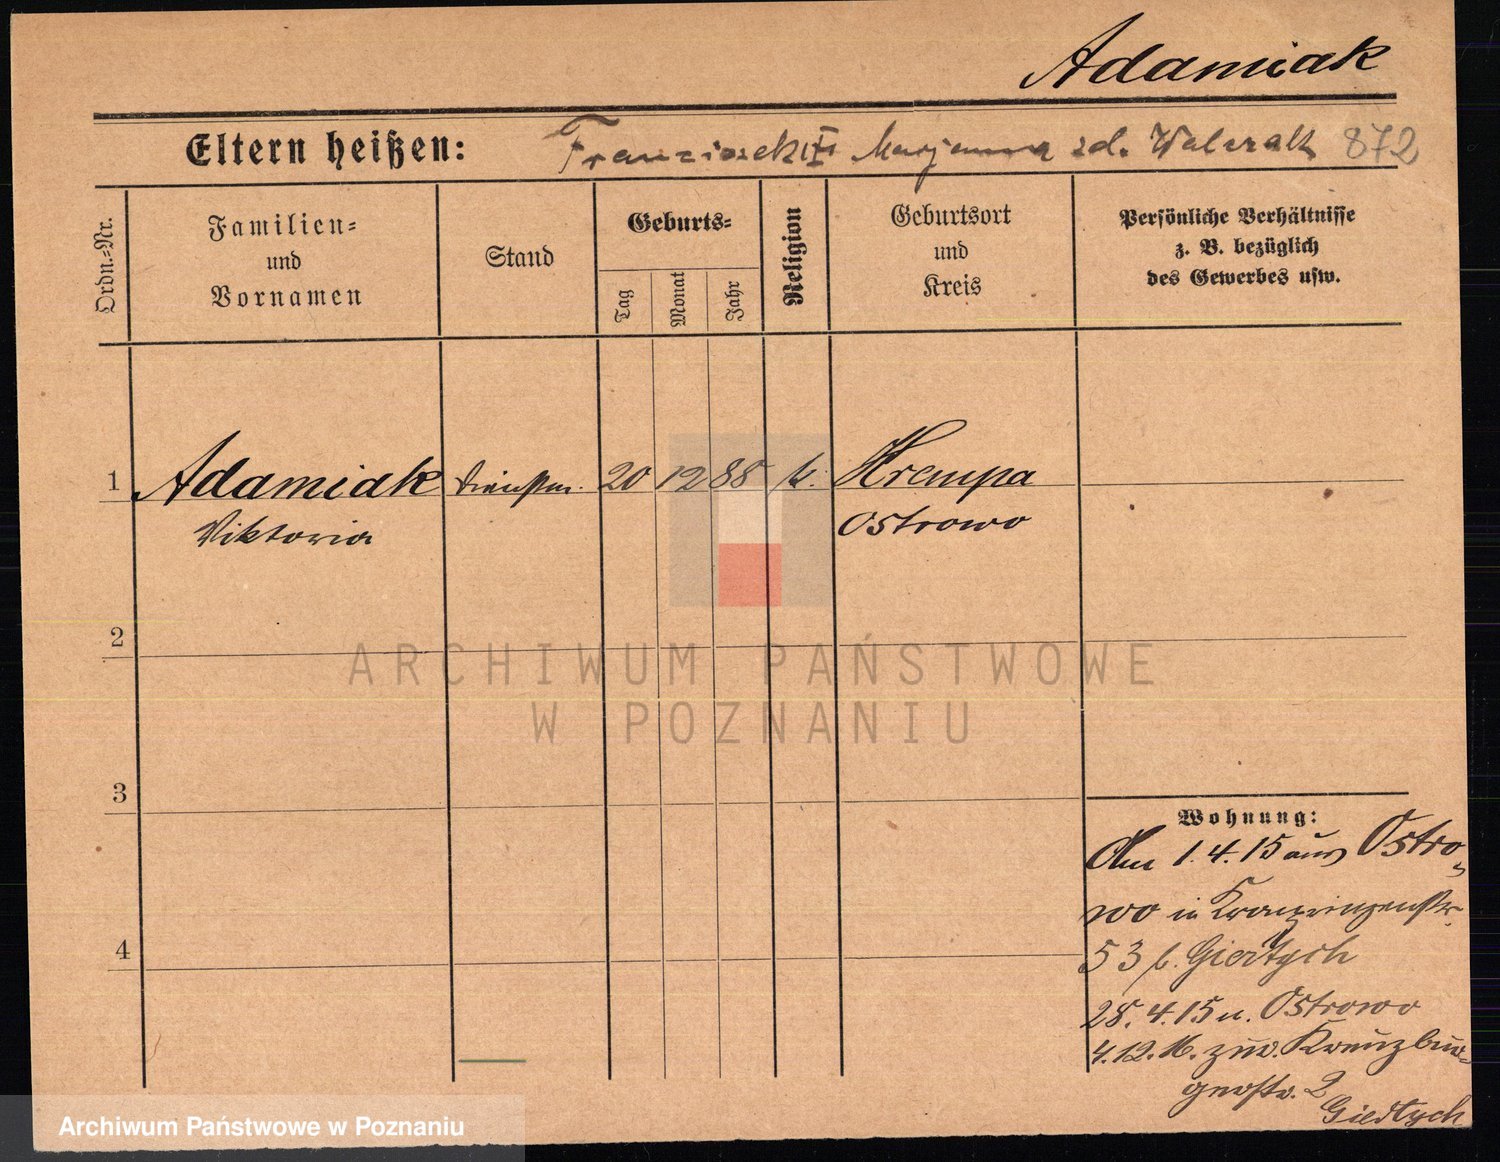 Adamiak
Eltern heißen: Franciszek Marjanna zd. Walczak 872
Ordn.-Nr.
Familien-
und
Vornamen
Stand
Geburts-
Tag
Monat
Jahr
Religion
Geburtsort
und
Kreis
Persönliche Verhältnisse
z. B. bezüglich
des Gewerbes usw.
1 Adamiak Dienstm. 20 12 88 k. Krempa
Viktoria Ostrowo
2
3
4
Wohnung:
Am 1.4.15 aus Ostro-
wo in Kronprinzenstr.
53 b. Giertych
28.4.15 n. Ostrowo
4.12.16. zur. Kreuzbur-
gerstr. 2
Giertych
ARCHIWUM PAŃSTWOWE
W POZNANIU
Archiwum Państwowe w Poznaniu